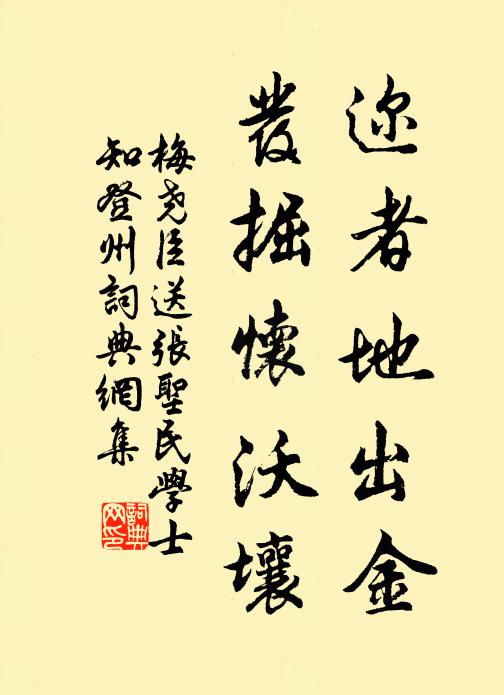 迩者地出金
發掘懷沃壤
梅堯臣送張聖民學士
知登州詞典網集
詞典
网印